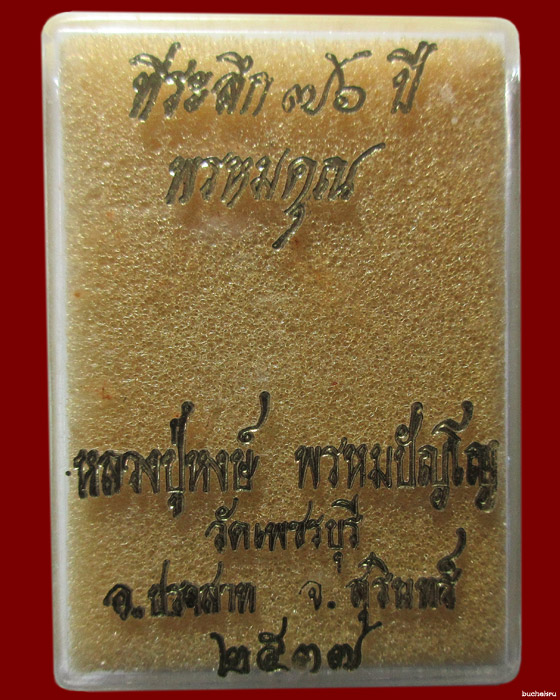 ที่ระลึก ๗๖ ปี
พรหมคุณ
หลวงปู่หงษ์ พรหมปัญโญ
วัดเพชรบุรี
อ.ปราสาท จ.สุรินทร์
๒๕๓๗
buchaleru